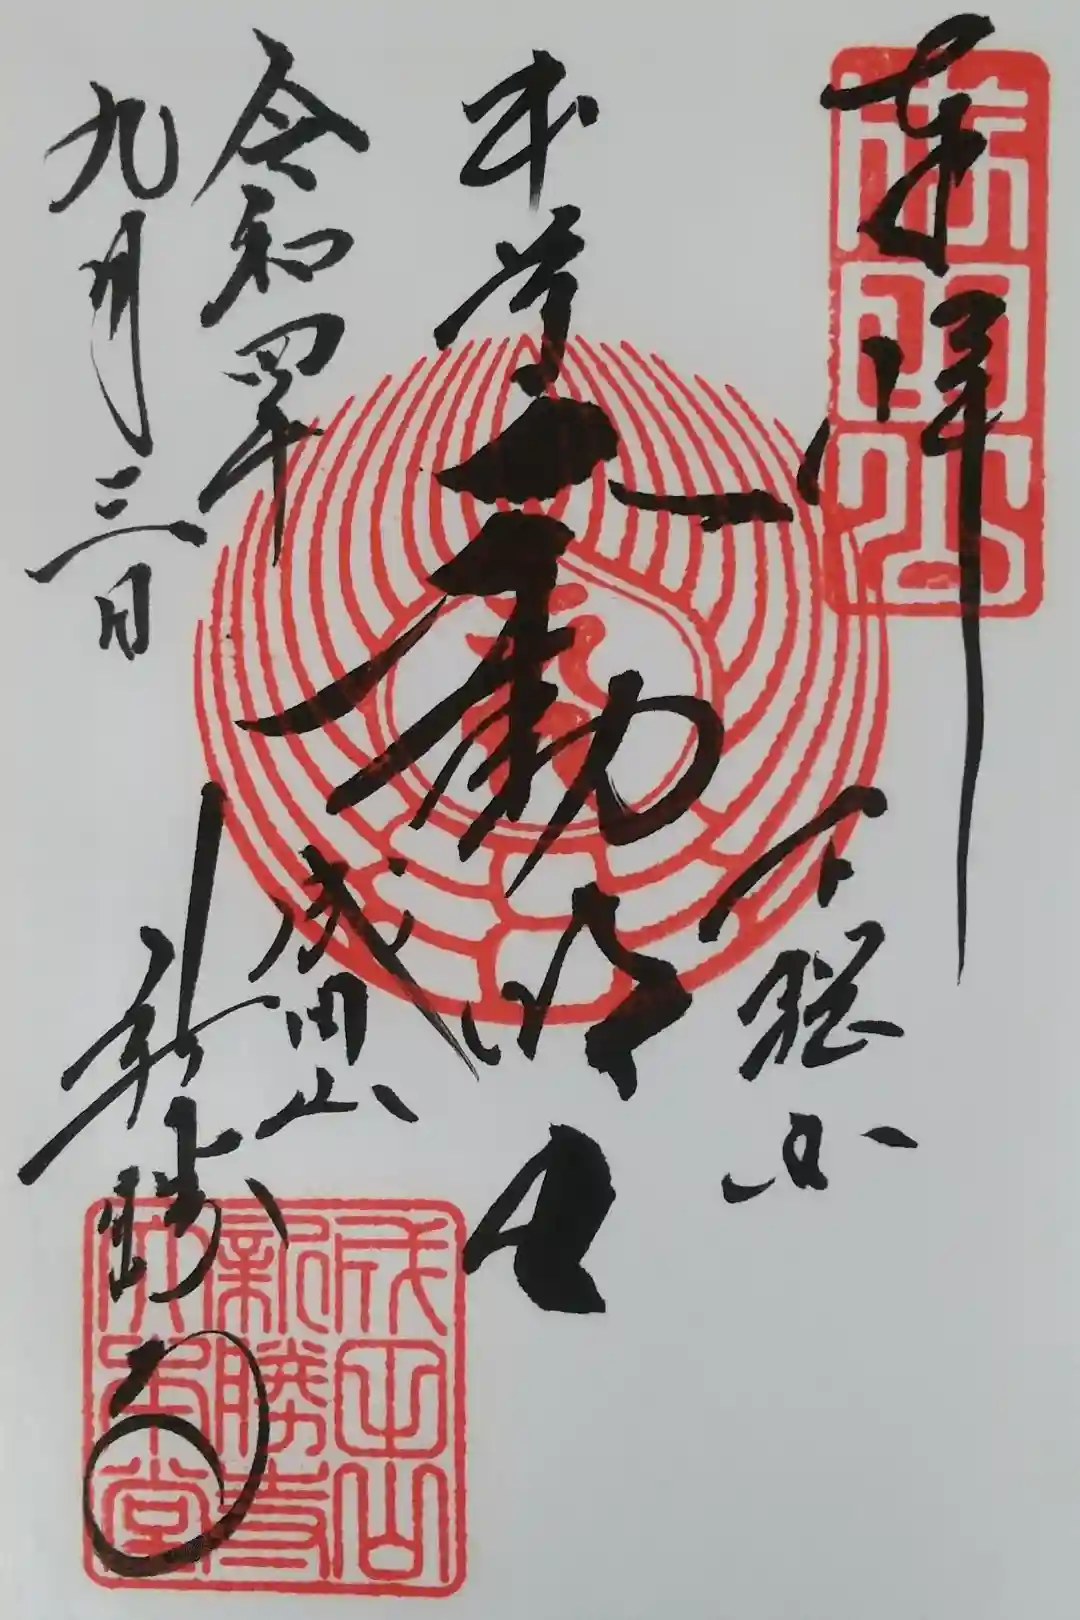 奉拝
成田山
下総国
本尊不動明王
成田山
新勝寺
令和四年
九月三日
成田山
新勝寺
大本堂